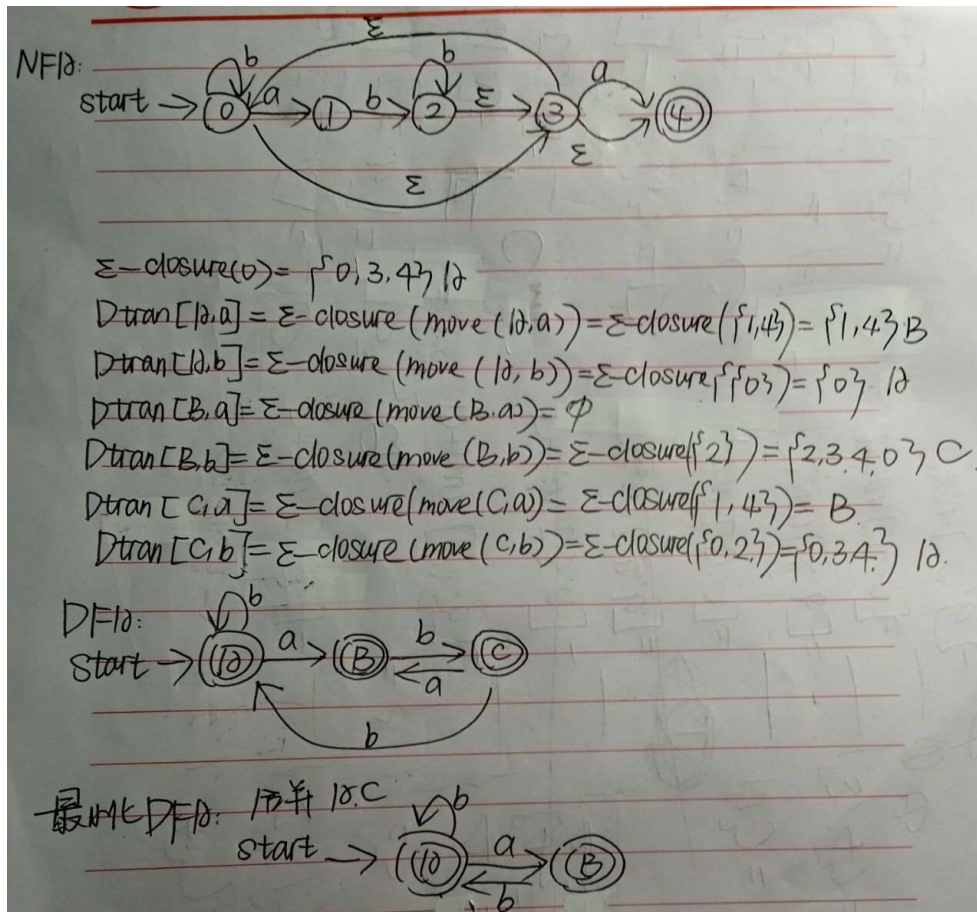 NFA:
start → 0 a 1 b 2 ε 3 a 4
b b ε ε ε
ε-closure(0) = {0,3,4} A
Dtran[A,a] = ε-closure(move(A,a)) = ε-closure({1,4}) = {1,4} B
Dtran[A,b] = ε-closure(move(A,b)) = ε-closure({0}) = {0} A
Dtran[B,a] = ε-closure(move(B.a) = φ
Dtran[B,b] = ε-closure(move(B,b)) = ε-closure({2}) = {2,3.4,0} C
Dtran[C,a] = ε-closure(move(C,a) = ε-closure({1,4}) = B.
Dtran[C,b] = ε-closure(move(C,b)) = ε-closure({0,2}) = {0,3.4.} A.
DFA:
b
start → A a B b C
a
b
最小化DFA: 合并 A.C
b
start → A a B
b